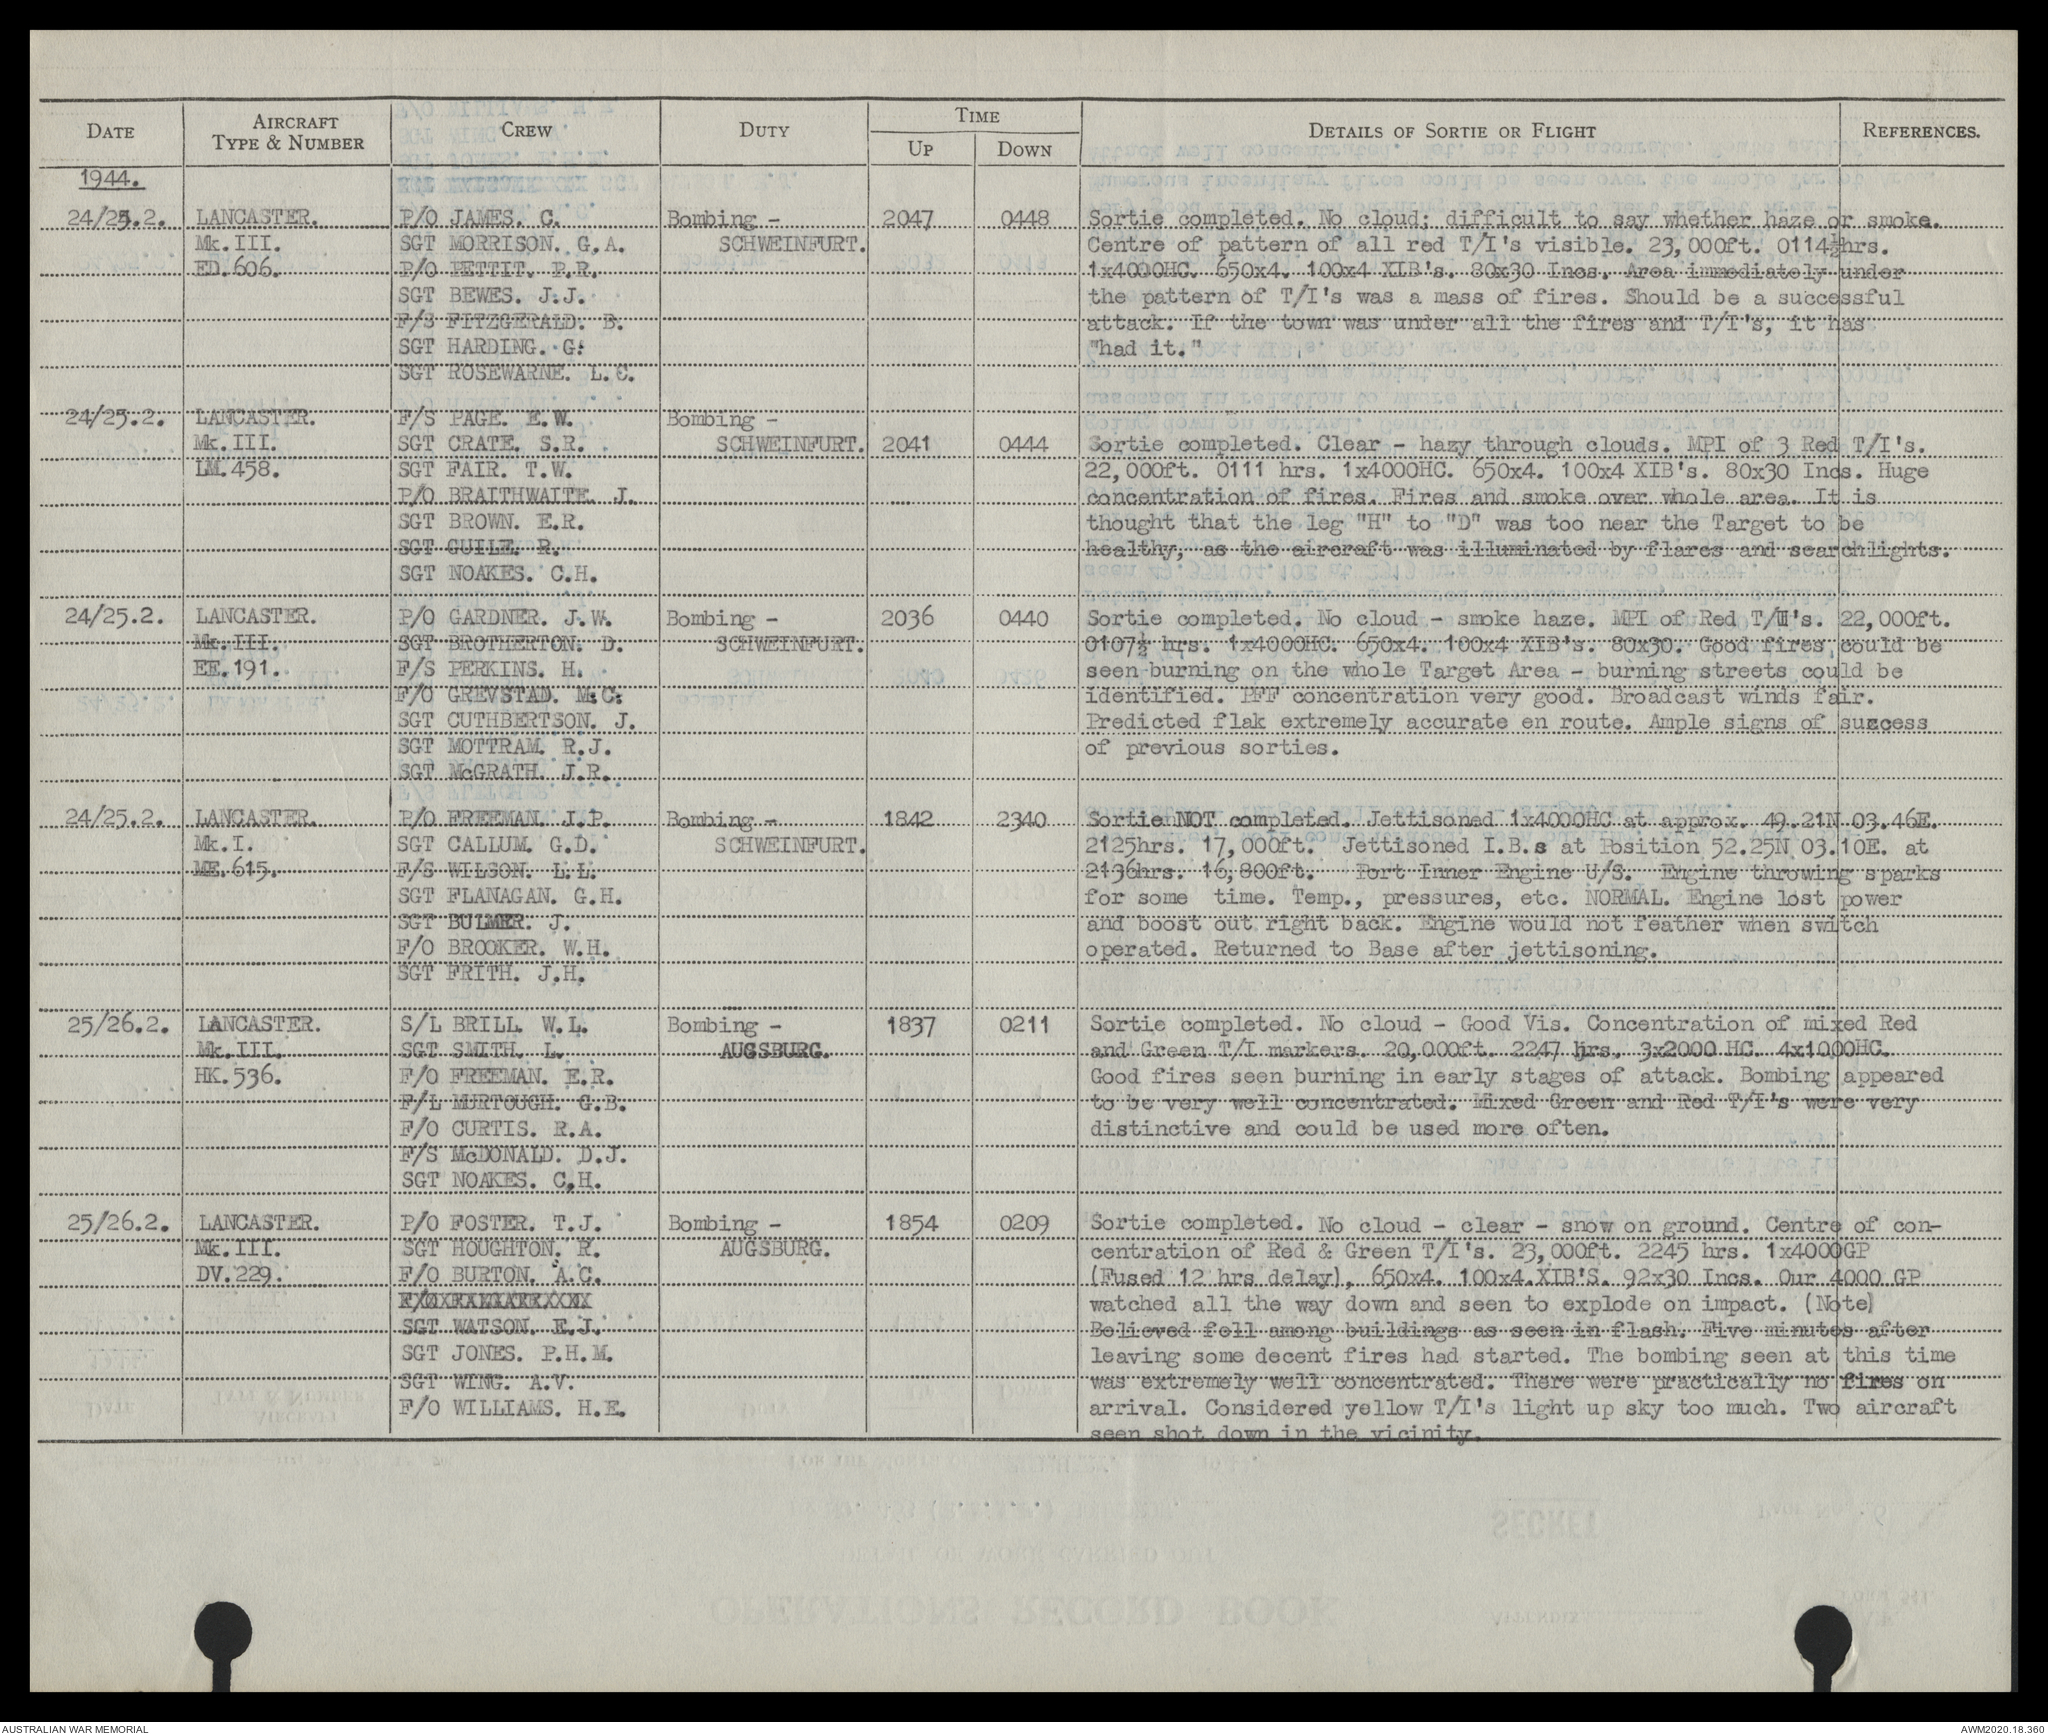 DATE AIRCRAFT TYPE & NUMBER CREW DUTY TIME UP DOWN DETAILS OF SORTIE OR FLIGHT REFERENCES.
1944.
24/25.2. LANCASTER. P/O JAMES. C. Bombing - 2047 0448 Sortie completed. No cloud; difficult to say whether haze or smoke.
Mk.III. SGT MORRISON. G.A. SCHWEINFURT. Centre of pattern of all red T/I's visible. 23,000ft. 0114½hrs.
ED.606. P/O PETTIT. P.R. 1x4000HC. 650x4. 100x4 XIB's. 80x30 Incs. Area immediately under
SGT BEWES. J.J. the pattern of T/I's was a mass of fires. Should be a successful
F/S FITZGERALD. B. attack. If the town was under all the fires and T/I's, it has
SGT HARDING. G. "had it."
SGT ROSEWARNE. L.C.
24/25.2. LANCASTER. F/S PAGE. E.W. Bombing -
Mk.III. SGT CRATE. S.R. SCHWEINFURT. 2041 0444 Sortie completed. Clear - hazy through clouds. MPI of 3 Red T/I's.
LM.458. SGT FAIR. T.W. 22,000ft. 0111 hrs. 1x4000HC. 650x4. 100x4 XIB's. 80x30 Incs. Huge
P/O BRAITHWAITE. J. concentration of fires. Fires and smoke over whole area. It is
SGT BROWN. E.R. thought that the leg "H" to "D" was too near the Target to be
SGT GUILE. R. healthy, as the aircraft was illuminated by flares and searchlights.
SGT NOAKES. C.H.
24/25.2. LANCASTER. P/O GARDNER. J.W. Bombing - 2036 0440 Sortie completed. No cloud - smoke haze. MPI of Red T/I's. 22,000ft.
Mk.III. SGT BROTHERTON. D. SCHWEINFURT. 0107½ hrs. 1x4000HC. 650x4. 100x4 XIB's. 80x30. Good fires could be
EE.191. F/S PERKINS. H. seen burning on the whole Target Area - burning streets could be
F/O GREVSTAD. M.C. identified. PFF concentration very good. Broadcast winds fair.
SGT CUTHBERTSON. J. Predicted flak extremely accurate en route. Ample signs of success
SGT MOTTRAM. R.J. of previous sorties.
SGT McGRATH. J.R.
24/25.2. LANCASTER. P/O FREEMAN. J.P. Bombing - 1842 2340 Sortie NOT completed. Jettisoned 1x4000HC at approx. 49.21N 03.46E.
Mk.I. SGT CALLUM. G.D. SCHWEINFURT. 2125hrs. 17,000ft. Jettisoned I.B.s at Position 52.25N 03.10E. at
ME.615. F/S WILSON. L.L. 2136hrs. 16,800ft. Port Inner Engine U/S. Engine throwing sparks
SGT FLANAGAN. G.H. for some time. Temp., pressures, etc. NORMAL. Engine lost power
SGT BULMER. J. and boost out right back. Engine would not feather when switch
F/O BROOKER. W.H. operated. Returned to Base after jettisoning.
SGT FRITH. J.H.
25/26.2. LANCASTER. S/L BRILL. W.L. Bombing - 1837 0211 Sortie completed. No cloud - Good Vis. Concentration of mixed Red
Mk.III. SGT SMITH. L. AUGSBURG. and Green T/I markers. 20,000ft. 2247 hrs. 3x2000 HC. 4x1000HC.
HK.536. F/O FREEMAN. E.R. Good fires seen burning in early stages of attack. Bombing appeared
F/L MURTOUGH. G.B. to be very well concentrated. Mixed Green and Red T/I's were very
F/O CURTIS. R.A. distinctive and could be used more often.
F/S McDONALD. D.J.
SGT NOAKES. C.H.
25/26.2. LANCASTER. P/O FOSTER. T.J. Bombing - 1854 0209 Sortie completed. No cloud - clear - snow on ground. Centre of con-
Mk.III. SGT HOUGHTON. R. AUGSBURG. centration of Red & Green T/I's. 23,000ft. 2245 hrs. 1x4000GP
DV.229. F/O BURTON. A.C. (Fused 12 hrs delay), 650x4. 100x4.XIB'S. 92x30 Incs. Our 4000 GP
watched all the way down and seen to explode on impact. (Note)
SGT WATSON. E.J. Believed fell among buildings as seen in flash. Five minutes after
SGT JONES. P.H.M. leaving some decent fires had started. The bombing seen at this time
SGT WING. A.V. was extremely well concentrated. There were practically no fires on
F/O WILLIAMS. H.E. arrival. Considered yellow T/I's light up sky too much. Two aircraft
seen shot down in the vicinity.
AUSTRALIAN WAR MEMORIAL AWM2020.18.360